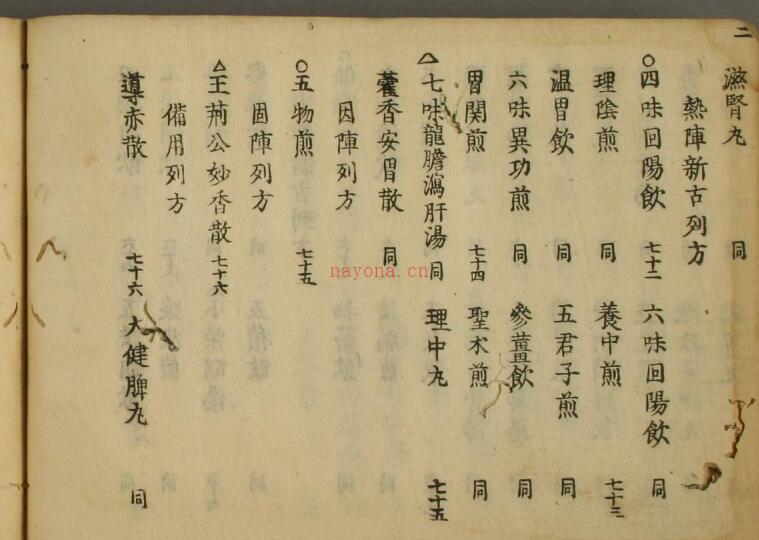 二
滋腎丸 同
熱陣新古列方
○四味回陽飲 七十二 六味回陽飲 同
理陰煎 同 養中煎 七十三
温胃飲 同 五君子煎 同
六味異功煎 同 參薑飲 同
胃関煎 七十四 聖朮煎 同
△七味龍膽瀉肝湯 同 理中丸 七十五
藿香安胃散 同
因陣列方
○五物煎 七十五
固陣列方
△王荊公妙香散 七十六
備用列方
導赤散 七十六 大健脾丸 同
nayona.cn